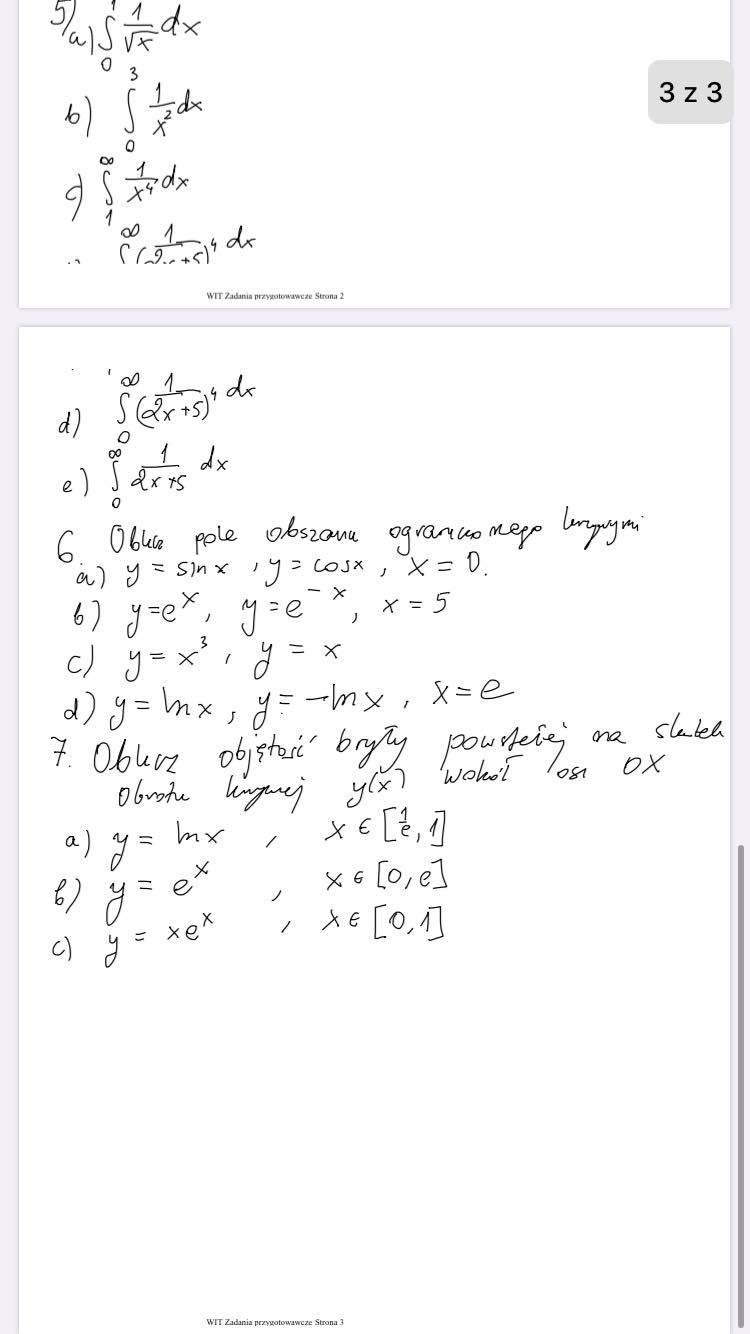 5/a) ∫₀¹ 1/√x dx
3 z 3
b) ∫₀³ 1/x² dx
c) ∫₁^∞ 1/x⁴ dx
∫^∞ 1/(2x+5)⁴ dx
WIT Zadania przygotowawcze Strona 2
d) ∫₀^∞ 1/(2x+5)⁴ dx
e) ∫₀^∞ 1/(2x+5) dx
6 Oblicz pole obszaru ograniczonego krzywymi
a) y = sin x, y = cos x, x = 0.
b) y = eˣ, y = e⁻ˣ, x = 5
c) y = x³, y = x
d) y = ln x, y = -ln x, x = e
7. Oblicz objętość bryły powstałej na skutek
obrotu krzywej y(x) wokół osi OX
a) y = ln x , x ∈ [1/e, 1]
b) y = eˣ , x ∈ [0, e]
c) y = xeˣ , x ∈ [0, 1]
WIT Zadania przygotowawcze Strona 3